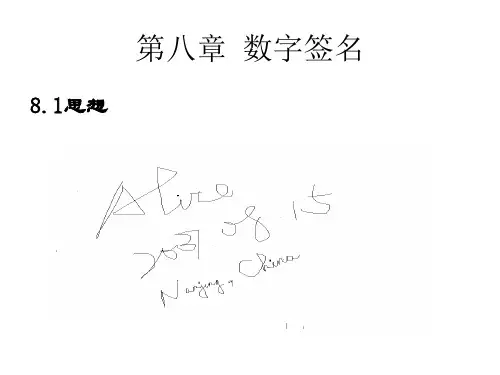 第八章 数字签名
8.1思想
Alice
08 15
Nanjing, China